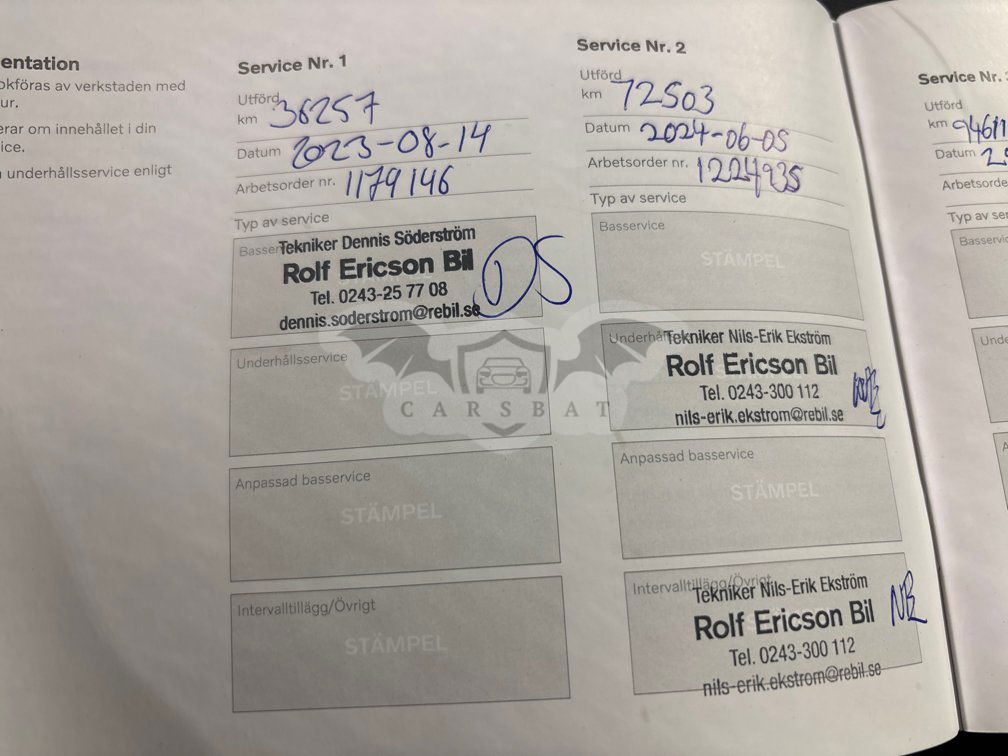 entation
okföras av verkstaden med
ur.
erar om innehållet i din
ice.
underhållsservice enligt
Service Nr. 1
Utförd
km 36257
Datum 2023-08-14
Arbetsorder nr. 1179146
Typ av service
Tekniker Dennis Söderström
Rolf Ericson Bil
Tel. 0243-25 77 08
dennis.soderstrom@rebil.se
DS
Underhållsservice
STÄMPEL
Anpassad basservice
STÄMPEL
Intervalltillägg/Övrigt
STÄMPEL
Service Nr. 2
Utförd
km 72503
Datum 2024-06-05
Arbetsorder nr. 1224935
Typ av service
Basservice
STÄMPEL
Underhå
Tekniker Nils-Erik Ekström
Rolf Ericson Bil
Tel. 0243-300 112
nils-erik.ekstrom@rebil.se
Anpassad basservice
STÄMPEL
Intervalltillägg/Övrigt
Tekniker Nils-Erik Ekström
Rolf Ericson Bil
Tel. 0243-300 112
nils-erik.ekstrom@rebil.se
Service Nr.
Utförd
km
Datum
Arbetsorde
Typ av ser
Basservic
Unde
CARSBAT